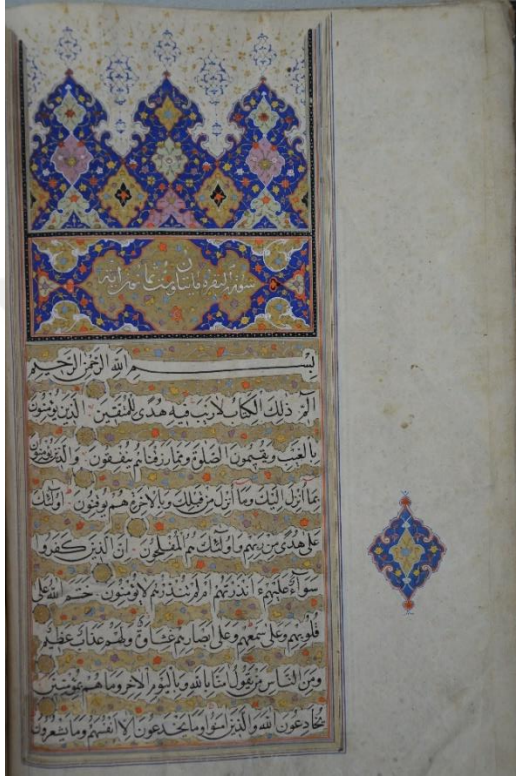 سورة البقرة مائتان وست وثمانون آية
بسم الله الرحمن الرحيم
الم ذلك الكتاب لا ريب فيه هدى للمتقين الذين يؤمنون
بالغيب ويقيمون الصلوة ومما رزقناهم ينفقون والذين يؤمنون
بما أنزل إليك وما أنزل من قبلك وبالآخرة هم يوقنون أولئك
على هدى من ربهم وأولئك هم المفلحون إن الذين كفروا
سواء عليهم ءأنذرتهم أم لم تنذرهم لا يؤمنون ختم الله على
قلوبهم وعلى سمعهم وعلى أبصارهم غشاوة ولهم عذاب عظيم
ومن الناس من يقول آمنا بالله وباليوم الآخر وما هم بمؤمنين
يخادعون الله والذين آمنوا وما يخدعون إلا أنفسهم وما يشعرون